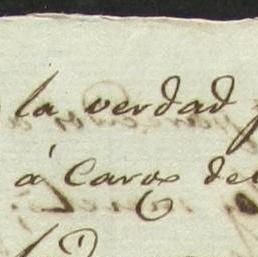 la verdad
á Caros de